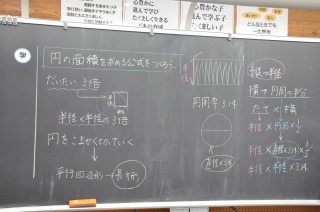 心豊かに
遊んで学び
たくましく生きる
心豊かな子
進んで学ぶ子
たくましい子
学
円の面積を求める公式をつくろう。
だいたい3倍
半径
半径×半径の3倍
円をこまかく分けていく
平行四辺形→長方形
半径
円周率 3.14
直径×3.14
縦→半径
横→円周の半分
たて×横
半径×円周×1/2
半径×直径×3.14×1/2
半径×半径×3.14